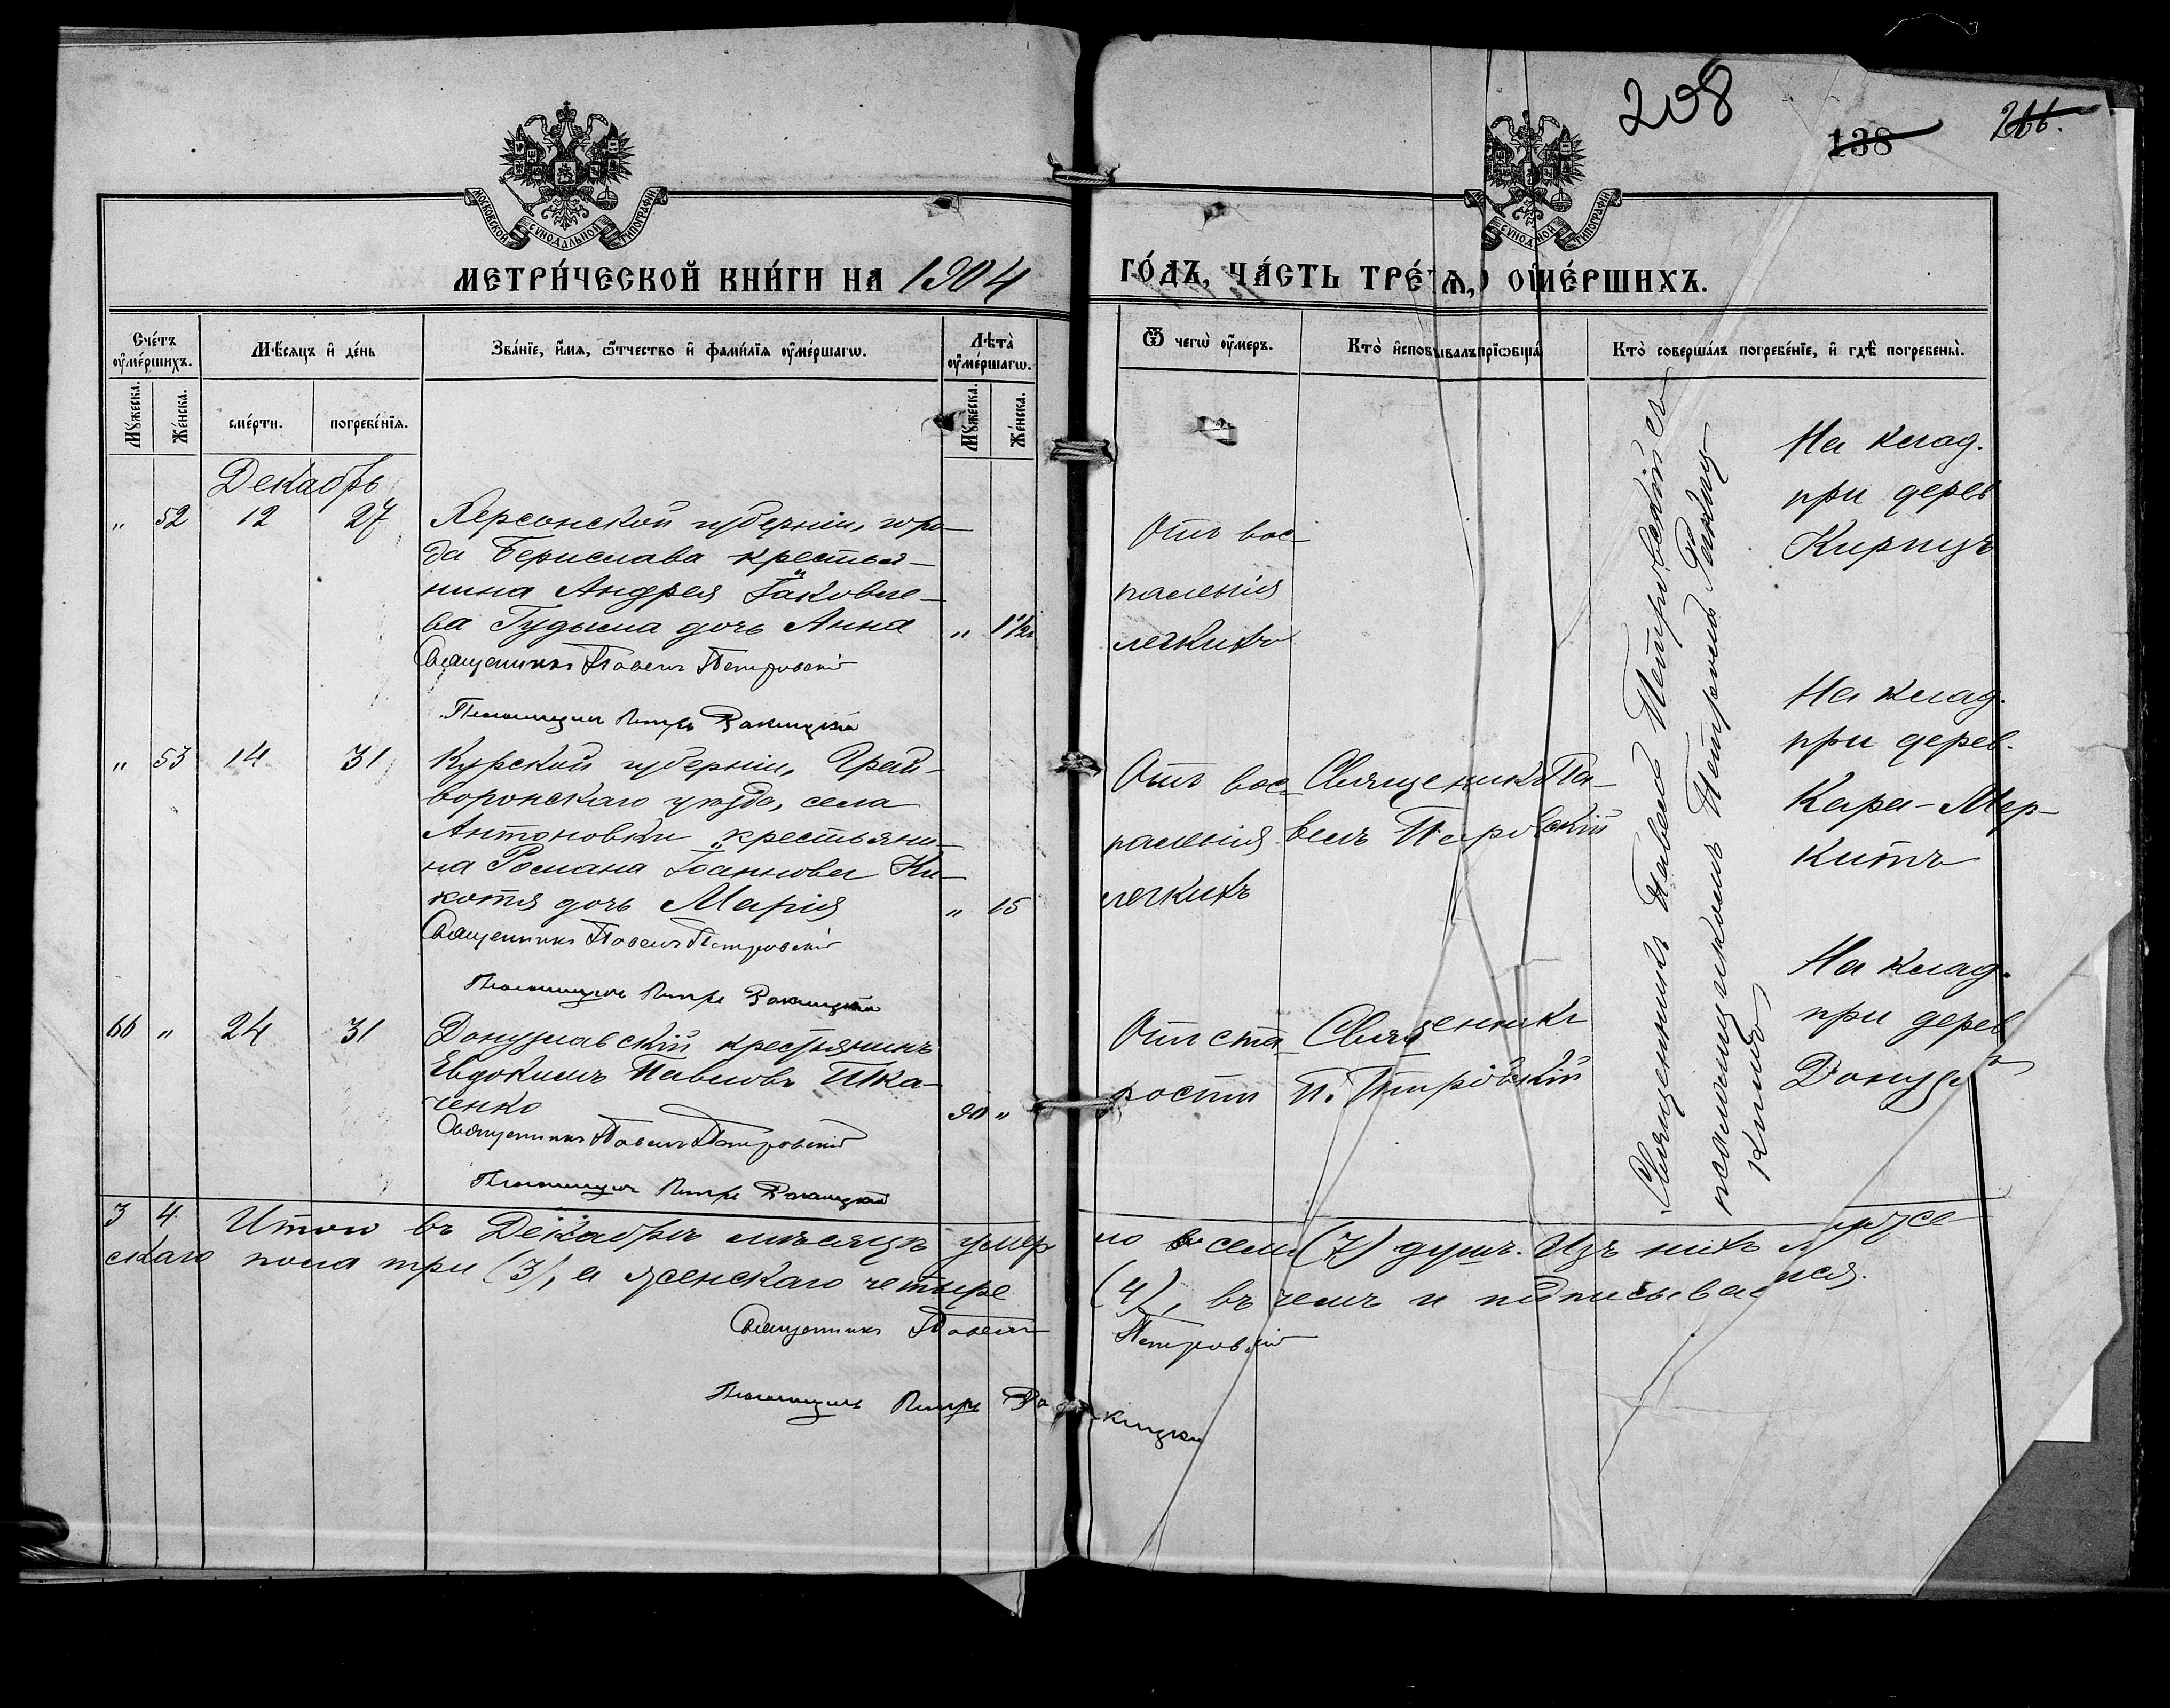 208
138
266.
МОСКОВСКОЙ СѴНОДАЛЬНОЙ ТИПОГРАФІИ
МЕТРИ́ЧЕСКОЙ КНИ́ГИ НА 1904 ГО́ДЪ, ЧА́СТЬ ТРЕ́ТЯ, О ОУМЕ́РШИХЪ.
Сче́тъ оумершихъ.
Мꙋжеска.
Же́нска.
Мѣ́сяцъ и де́нь
сме́рти.
погребе́нїя.
Зва́нїе, и́мя, ѻ҆́тчество и фами́лїя оуме́ршагѡ.
Лѣ́та оуме́ршагѡ.
Мꙋжеска.
Же́нска.
Ѿ чегѡ̀ оу́меръ.
Кто̀ исповѣ́дывалъ прїѡбща́
Кто̀ соверша́лъ погребе́нїе, и гдѣ̀ погребены̀.
Декабрь
" 52 12 27
Херсонской губерніи, горо-
да Берислава крестья-
нина Андрея Іаковле-
ва Гудыма дочь Анна " 1 1/2
Священникъ Павелъ Петровскій
Псаломщикъ Петръ Ракицкій
Отъ вос-
паленія
легкихъ
На клад.
при дерев
Киргизъ
" 53 14 31
Курской губерніи, Грай-
воронскаго уѣзда, села
Антоновки крестьяни-
на Романа Іоаннова Ки-
котя дочь Марія " 15
Священникъ Павелъ Петровскій
Псаломщикъ Петръ Ракицкій
Отъ вос-
паленія
легкихъ
Священникъ Па-
велъ Петровскій
На клад.
при дерев.
Кара-Мер-
китъ
66 " 24 31
Донузлавскій крестьянинъ
Евдокимъ Павловъ Шка-
ченко 90 "
Священникъ Павелъ Петровскій
Псаломщикъ Петръ Ракицкій
Отъ ста-
рости
Священникъ
П. Петровскій
На клад.
при дерев
Донузл
Священникъ Павелъ Петровскій съ
псаломщикомъ Петромъ Ракиц
кимъ
3 4 Итого въ Декабрѣ мѣсяцѣ умер ло семь (7) душъ. Изъ нихъ муже
скаго пола три (3), а женскаго четыре (4), въ чемъ и подписываемся.
Священникъ Павелъ Петровскій
Псаломщикъ Петръ Ракицкій